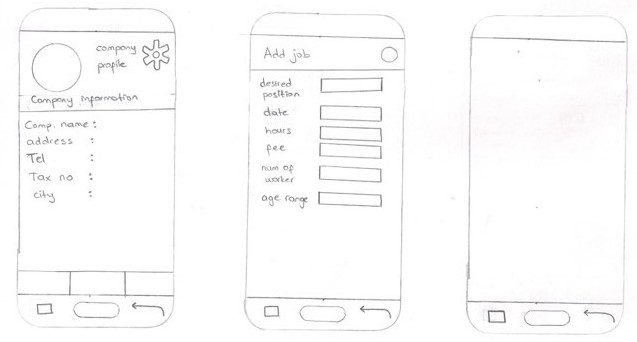 company
profile
Company Information
Comp. name :
address :
Tel :
Tax no :
city :
Add job
desired
position
date
hours
fee
num of
worker
age range